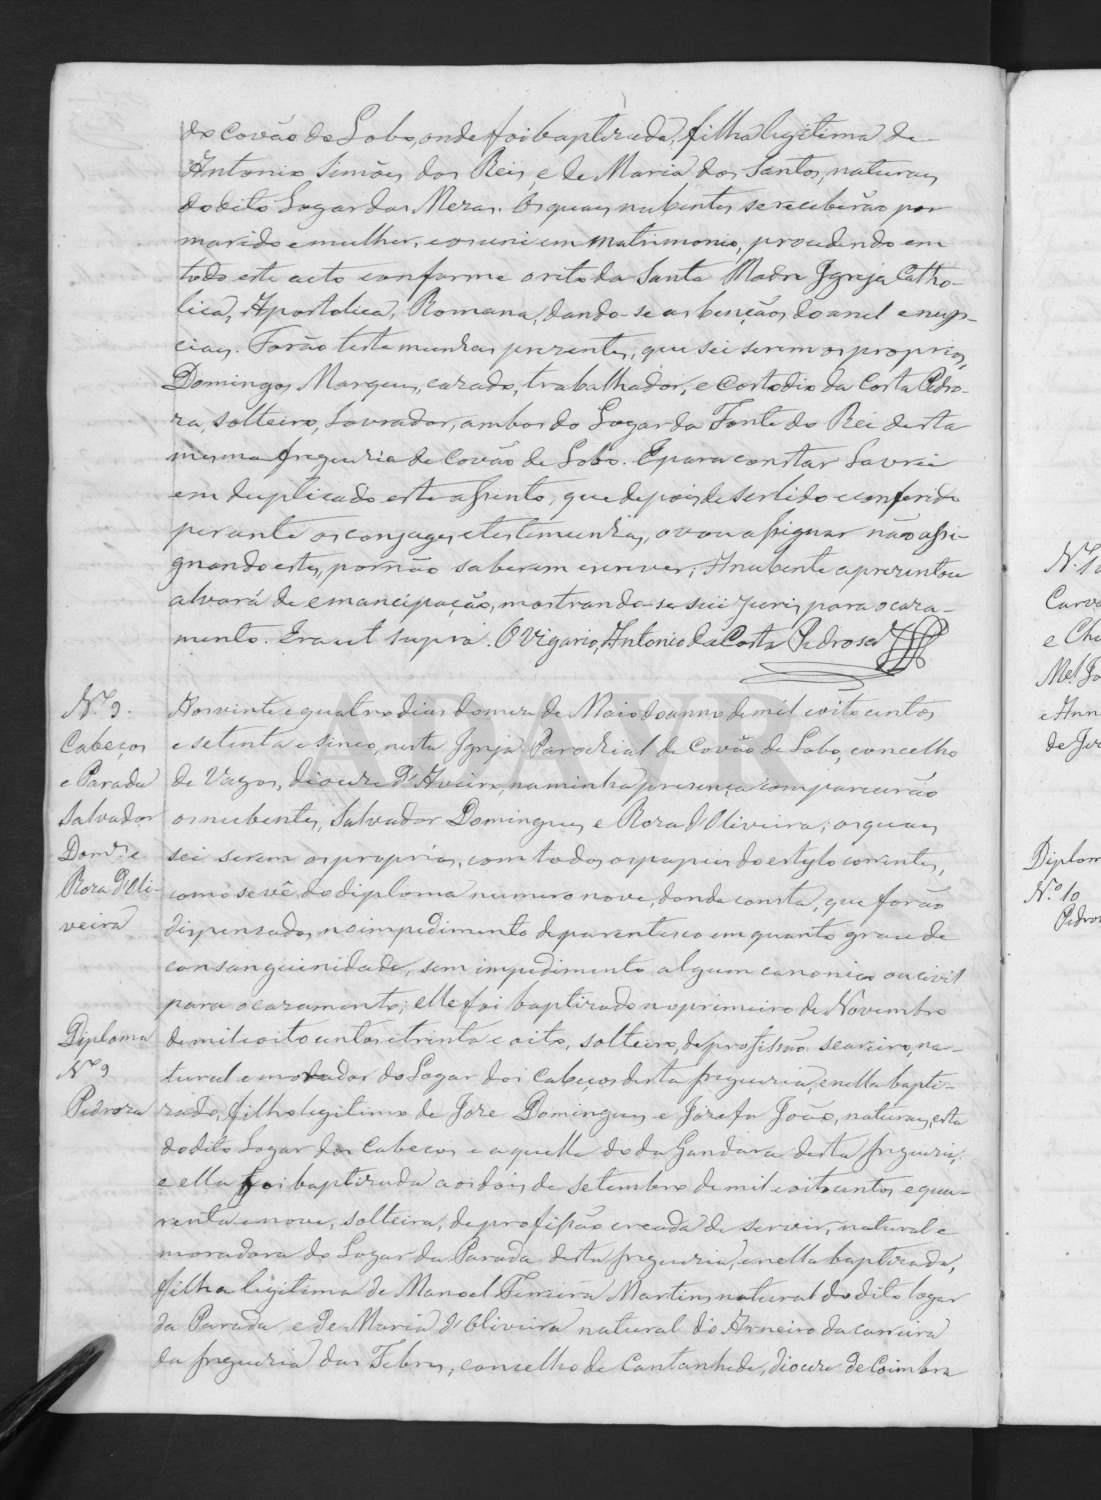 de Covão do Lobo, onde foi baptizada, filha legitima de
Antonio Simões dos Reis, e de Maria dos Santos, naturaes
do dito Logar das Mezas. Os quaes nubentes se receberão por
marido e mulher, e os uni em matrimonio, procedendo em
todo este acto conforme o rito da Santa Madre Igreja Catho-
lica, Apostolica, Romana, dando-se as bençãos do anel e nup-
ciaes. Forão testemunhas prezentes, que sei serem os proprios,
Domingos Marques, cazado, trabalhador, e Costodio da Costa Pedro-
za, solteiro, Lavrador, ambos do Logar da Fonte do Rei desta
mesma freguezia de Covão do Lobo. E para constar Lavrei
em duplicado este assento, que depois de ser lido e conferido
perante os conjuges e testemunhas, o vou assignar não assi-
gnando estes, por não saberem escrever; A nubente aprezentou
alvará de emancipação, mostrando-se sui juris, para o caza-
mento. Era ut supra. O Vigario, Antonio da Costa Pedroza
Nº 9.
Cabeços
e Parada
Salvador
Doms. e
Roza d'Oli-
veira
Diploma
Nº 9
Pedroza
Aos vinte e quatro dias do mez de Maio do anno de mil oito centos
e setenta e sinco, nesta Igreja Parochial de Covão do Lobo, concelho
de Vagos, diocese d'Aveiro, na minha presença comparecerão
os nubentes, Salvador Domingues e Roza d'Oliveira; os quaes
sei serem os proprios, com todos os papeis do estylo correntes,
como se vê do diploma numero nove, donde consta, que forão
dispensados no impedimento de parentesco em quarto grau de
consanguinidade, sem impedimento algum canonico ou civil
para o cazamento; elle foi baptizado no primeiro de Novembro
de mil oito centos e trinta e oito, solteiro, de profissão seareiro, na-
tural e morador do Logar dos Cabeços desta freguezia, e nella bapti-
zado, filho legitimo de Joze Domingues e Jozefa João, naturaes, esta
do dito Logar dos Cabeços e aquelle do da Gandara desta freguezia;
e ella foi baptizada aos dois de Setembro de mil e oito centos e qua-
renta e nove, solteira, de profissão creada de servir, natural e
moradora do Logar da Parada desta freguezia, e nella baptizada,
filha legitima de Manoel Ferreira Martins natural do dito logar
da Parada, e de Maria d'Oliveira natural do Arneiro da Carreira
da freguezia das Febres, concelho de Cantanhede, diocese de Coimbra
Nº 10
e Ch
Mel. Jo
e Ann
de Jez
Diplom
Nº 10
Pedroz
ADAVR